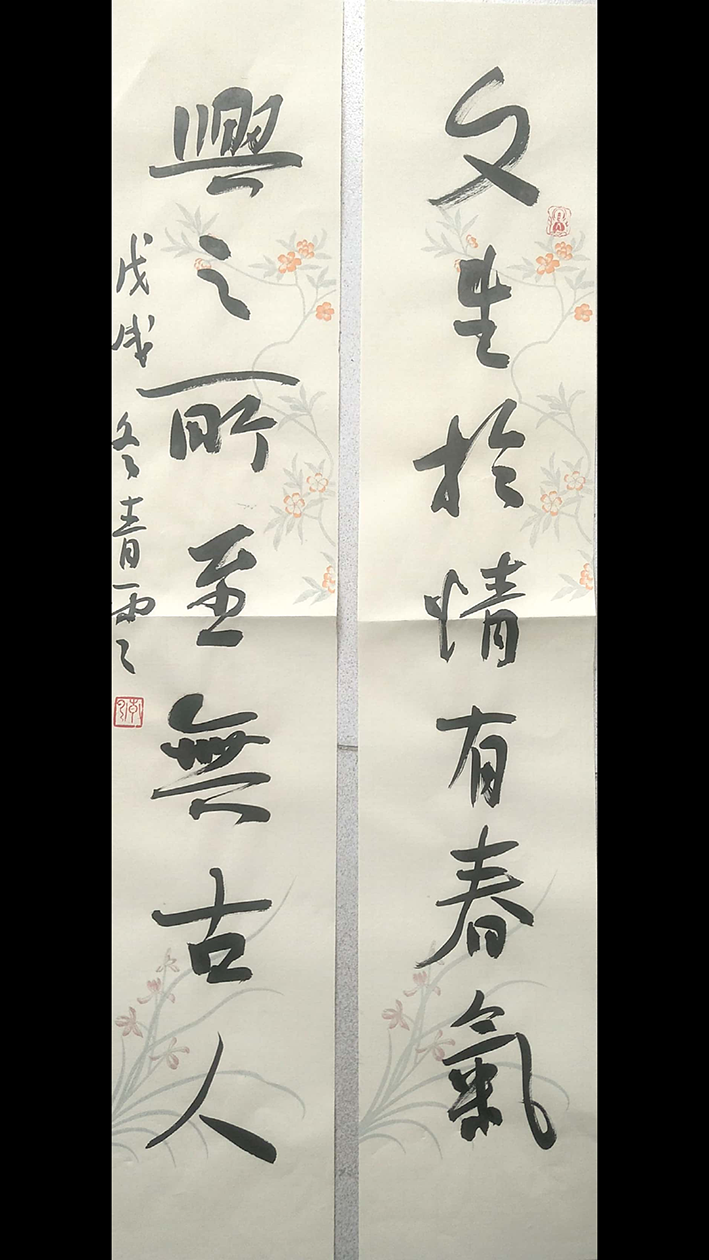 文生於情有春氣
興之所至無古人
戊戌冬青雲